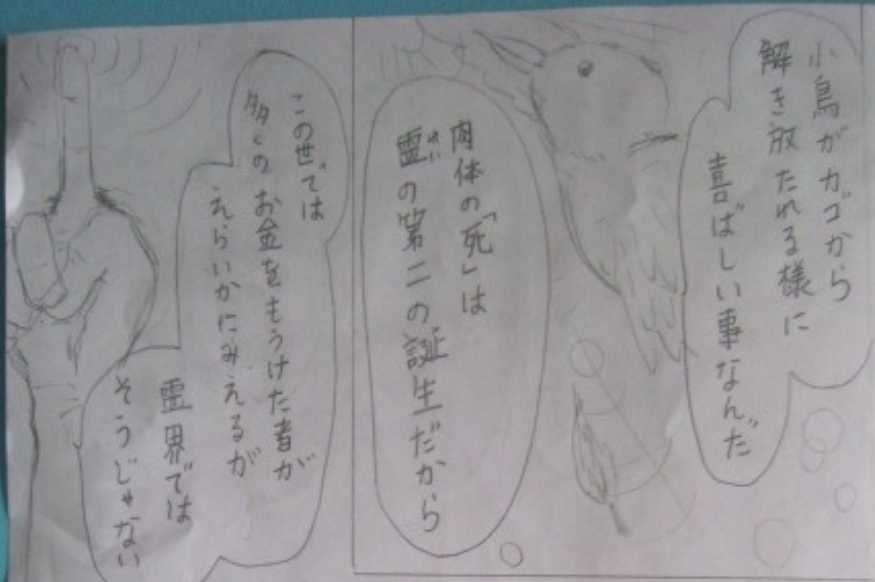 小鳥がカゴから
解き放たれる様に
喜ばしい事なんだ
肉体の「死」は
霊の第二の誕生だから
れい
この世では
多くの お金をもうけた者が
えらいかにみえるが
霊界では
そうじゃない